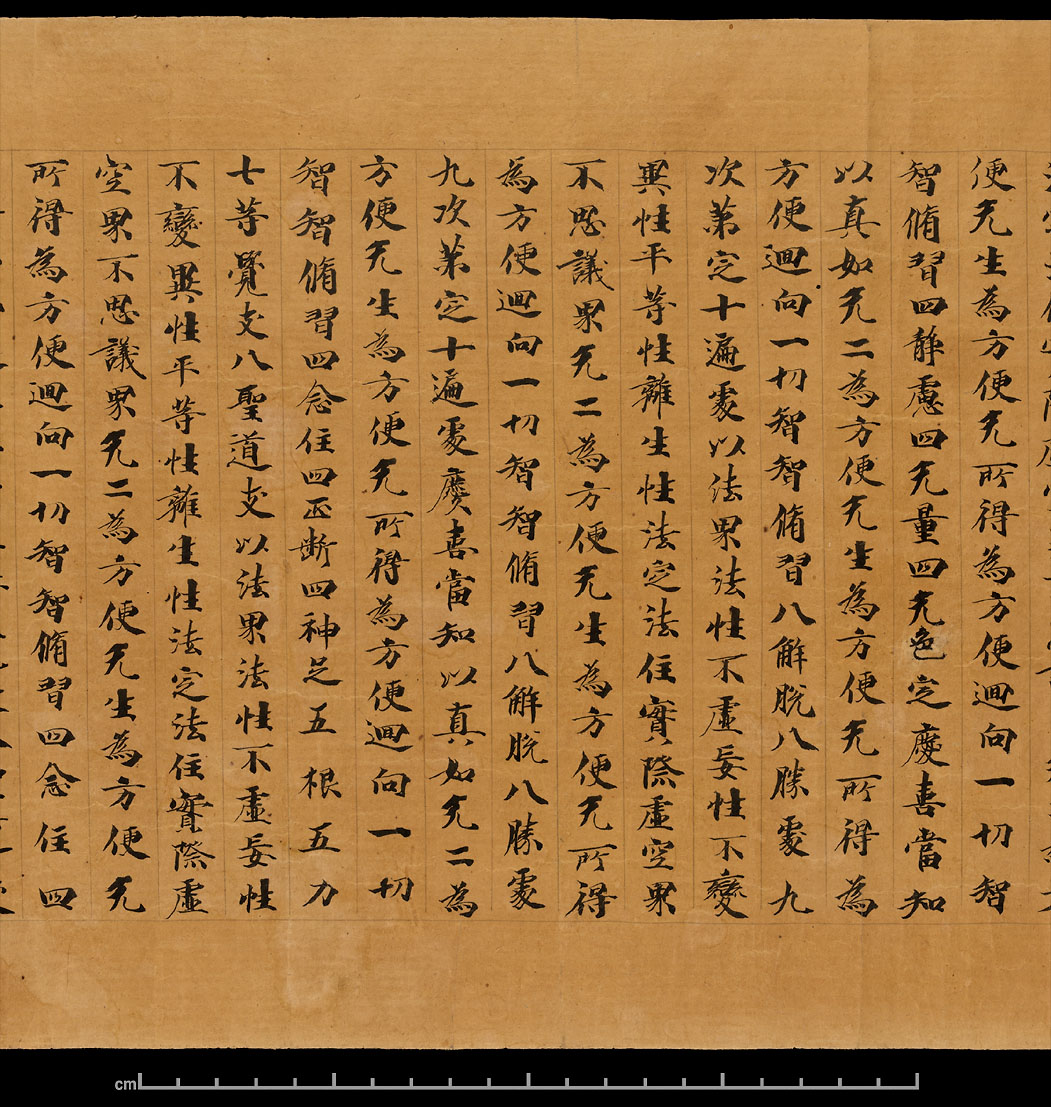 便无生為方便无所得為方便迴向一切智
智脩習四靜慮四无量四无色定慶喜當知
以真如无二為方便无生為方便无所得為
方便迴向一切智智脩習八解脫八勝處九
次第定十遍處以法界法性不虛妄性不變
異性平等性離生性法定法住實際虛空界
不思議界无二為方便无生為方便无所得
為方便迴向一切智智脩習八解脫八勝處
九次第定十遍處慶喜當知以真如无二為
方便无生為方便无所得為方便迴向一切
智智脩習四念住四正斷四神足五根五力
七等覺支八聖道支以法界法性不虛妄性
不變異性平等性離生性法定法住實際虛
空界不思議界无二為方便无生為方便无
所得為方便迴向一切智智脩習四念住四
cm